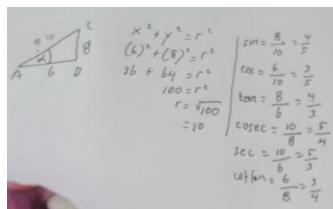 C
10
8
α
A
6
B
x² + y² = r²
(6)² + (8)² = r²
36 + 64 = r²
100 = r²
r = √100
= 10
sin = 8/10 = 4/5
cos = 6/10 = 3/5
tan = 8/6 = 4/3
cosec = 10/8 = 5/4
sec = 10/6 = 5/3
cottan = 6/8 = 3/4